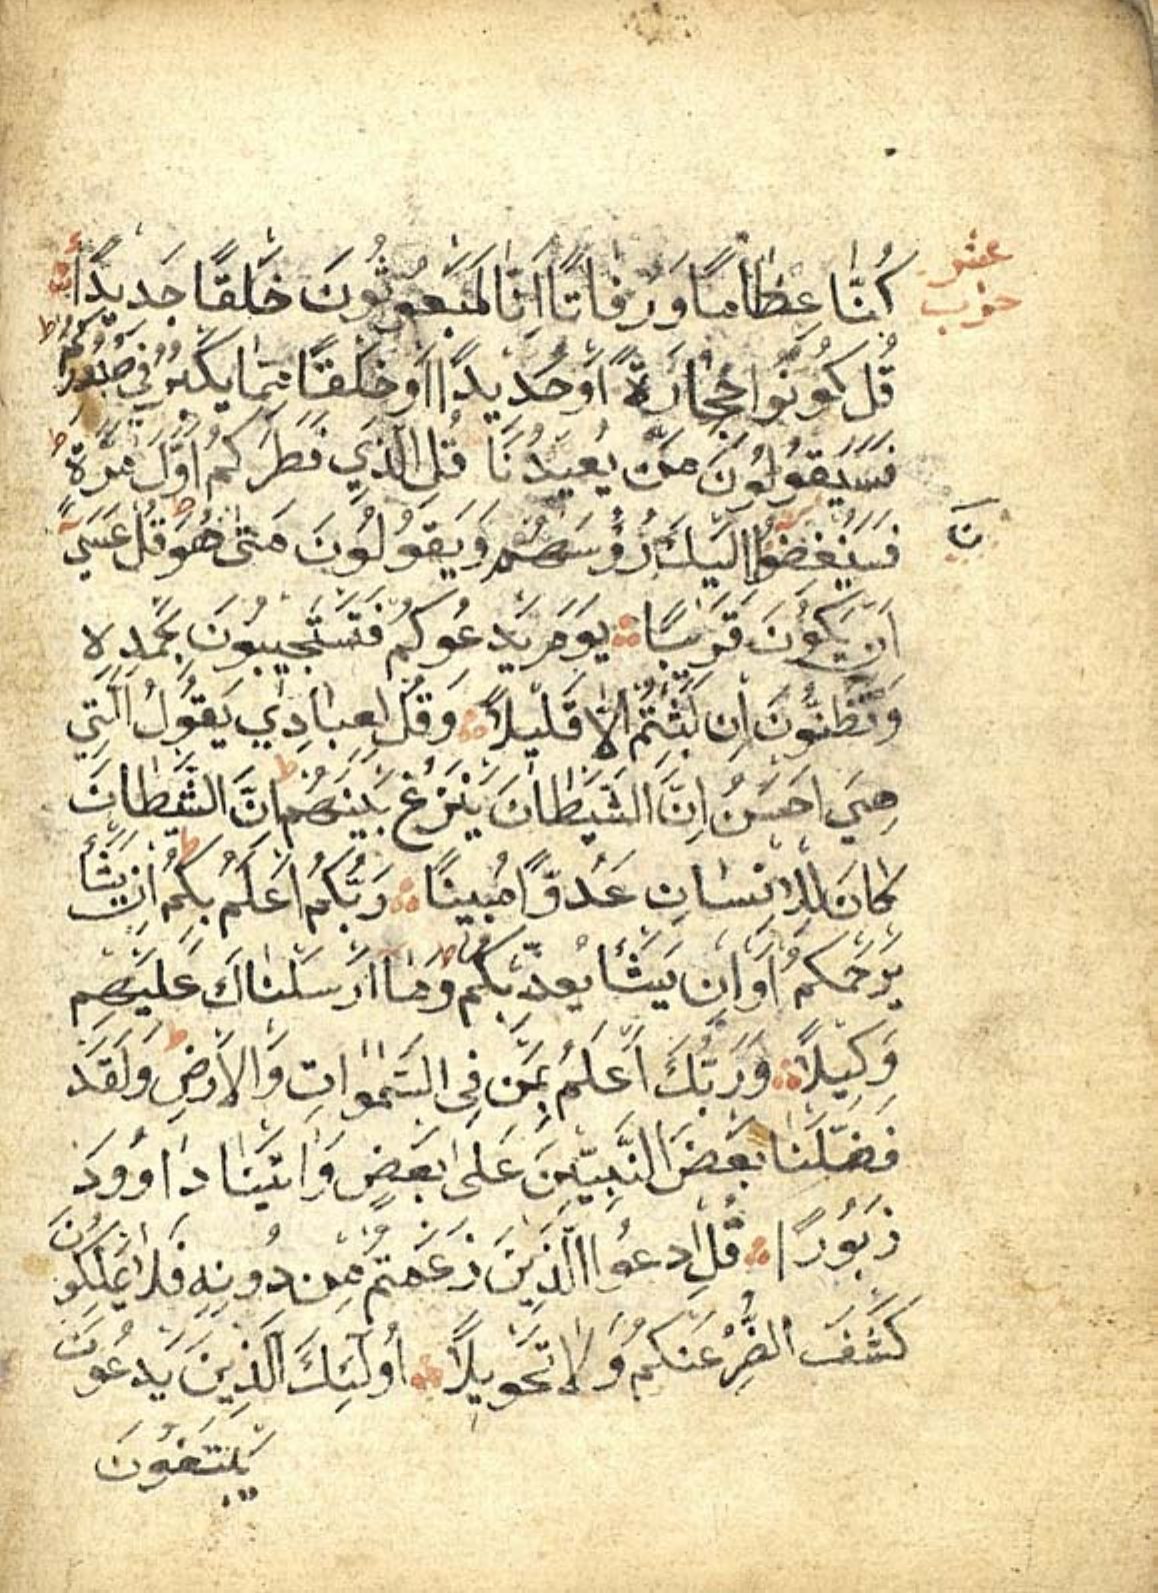 عشر
حزب
كُنَّا عِظَامًا وَرُفَاتًا اَئِنَّا لَمَبْعُوثُونَ خَلْقًا جَدِيدًا
قُلْ كُونُوا حِجَارَةً اَوْ حَدِيدًا اَوْ خَلْقًا مِمَّا يَكْبُرُ فِي صُدُورِكُمْ ط
فَسَيَقُولُونَ مَنْ يُعِيدُنَا قُلِ الَّذِي فَطَرَكُمْ اَوَّلَ مَرَّةٍ ط
فَسَيُنْغِضُونَ اِلَيْكَ رُؤُسَهُمْ وَيَقُولُونَ مَتٰى هُوَ قُلْ عَسٰى
اَنْ يَكُونَ قَرِيبًا يَوْمَ يَدْعُوكُمْ فَتَسْتَجِيبُونَ بِحَمْدِهِ
وَتَظُنُّونَ اِنْ لَبِثْتُمْ اِلَّا قَلِيلًا وَقُلْ لِعِبَادِي يَقُولُ الَّتِي
هِيَ اَحْسَنُ اِنَّ الشَّيْطَانَ يَنْزَغُ بَيْنَهُمْ ط اِنَّ الشَّيْطَانَ
كَانَ لِلْاِنْسَانِ عَدُوًّا مُبِينًا رَبُّكُمْ اَعْلَمُ بِكُمْ ط اِنْ يَشَأْ
يَرْحَمْكُمْ اَوْ اِنْ يَشَأْ يُعَذِّبْكُمْ وَمَا اَرْسَلْنَاكَ عَلَيْهِمْ
وَكِيلًا وَرَبُّكَ اَعْلَمُ بِمَنْ فِى السَّمٰوَاتِ وَالْاَرْضِ ط وَلَقَدْ
فَضَّلْنَا بَعْضَ النَّبِيِّينَ عَلٰى بَعْضٍ وَاٰتَيْنَا دَاوُودَ
زَبُورًا قُلِ ادْعُوا الَّذِينَ زَعَمْتُمْ مِنْ دُونِهِ فَلَا يَمْلِكُونَ
كَشْفَ الضُّرِّ عَنْكُمْ وَلَا تَحْوِيلًا اُولٰئِكَ الَّذِينَ يَدْعُونَ
يَبْتَغُونَ